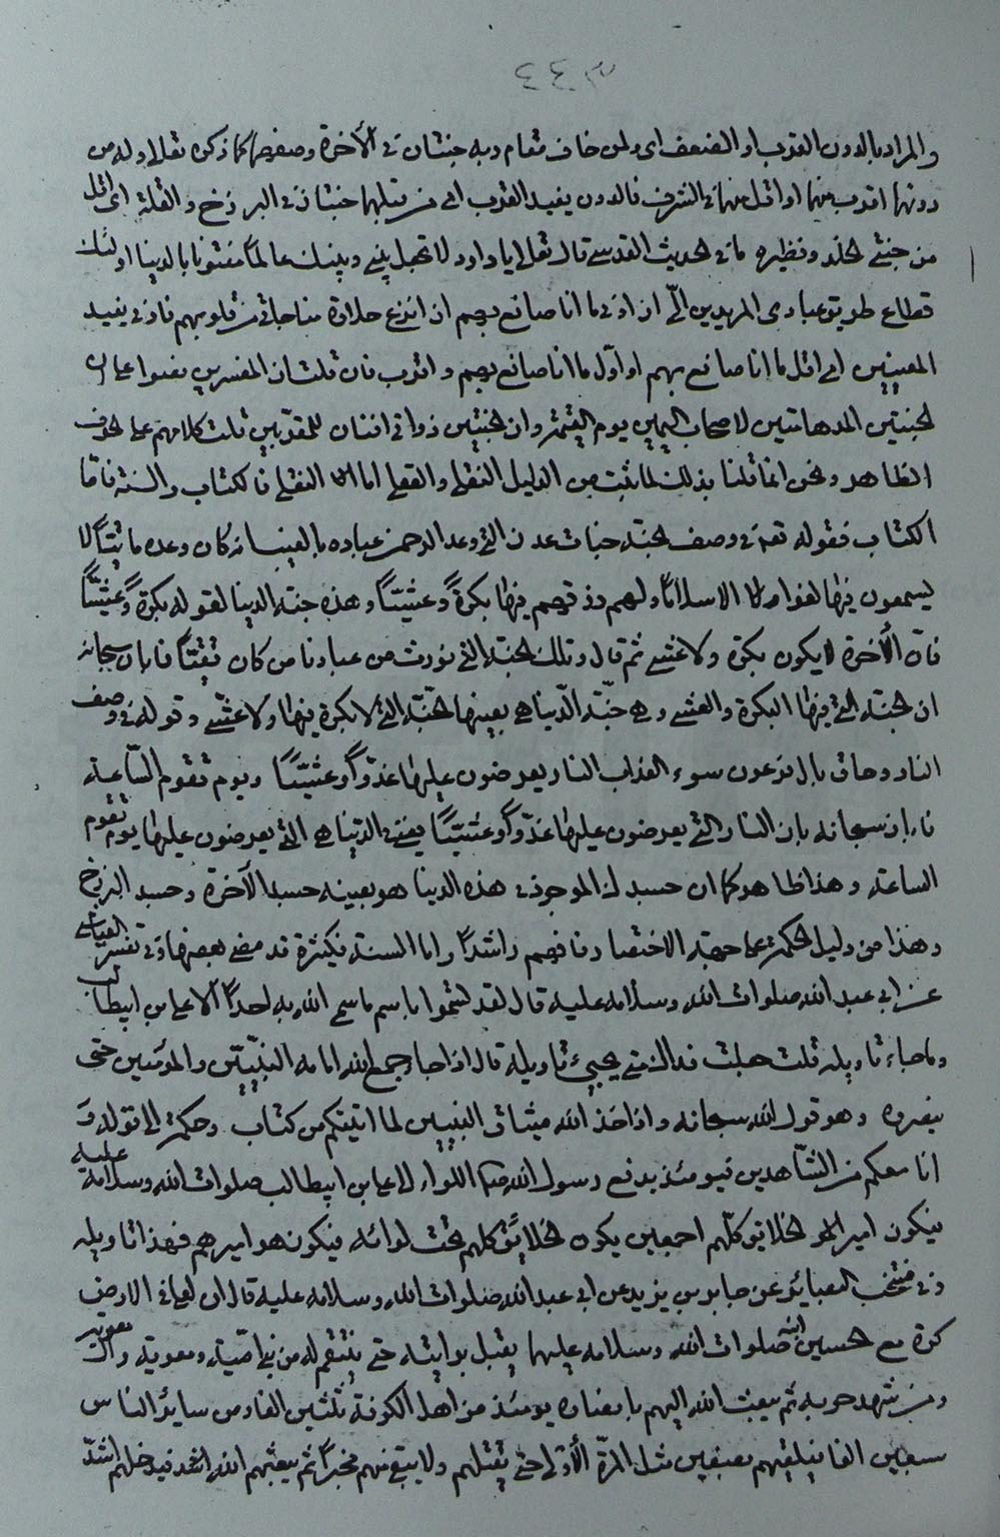 ٣٤٤
والمراد بالدون القرب او الضعف اى ولمن خاف مقام ربه جنتان فى الأخرة وصفهما كما ذكره تعالى وله من
دونهما اقرب منهما او اقل منهما فى الشرف فالدون يفيد القرب اى من قبلهما جنتان فى البرزخ والقلة اى اقل
من جنتى الخلد ونظيره ما فى الحديث القدسى قال تعالى يا داود لا تجعل بينى وبينك عالماً مفتونا بالدنيا اولئك
قطاع طريق عبادى المريدين الىّ ان ادنى ما انا صانع بهم ان انزع حلاوة مناجاتى من قلوبهم فادنى يفيد
المعنيين اى اقل ما انا صانع بهم او اوّل ما انا صانع بهم واقرب فان قلت ان المفسرين نصوا على ان
الجنتين المدهامتين لاصحاب اليمين يوم القيمة وان الجنتين ذواتى افنان للمقرّبين قلت كلامهم على الحرف
الظاهر ونحن انما قلنا بذلك لما ثبت من الدليل النقلى والعقلى اما النقلى فالكتاب والسنة فامّا
الكتاب فقوله تعالى فى وصف الجنة جنات عدن التى وعد الرحمن عباده بالغيب انه كان وعده مأتيّاً لا
يسمعون فيها لغوا الا سلاماً ولهم رزقهم فيها بكرةً وعشيّاً وهذه جنة الدنيا لقوله بكرةً وعشيّاً
فان الأخرة لا يكون بكرة ولا عشى ثم قال وتلك الجنة التى نورث من عبادنا من كان تقيّاً فابان سبحانه
ان الجنة التى فيها البكرة والعشى وهى جنّة الدّنيا هى بعينها الجنّة التى لا بكرة فيها ولا عشى وقوله فى وصف
النار وحاق بال فرعون سوء العذاب النار يعرضون عليها غدوّاً وعشيّاً ويوم تقوم السّاعة
فابان سبحانه بان النار التى يعرضون عليها غدوّاً وعشيّاً يعنى فى الدّنيا هى التى يعرضون عليها يوم تقوم
الساعة وهذا ظاهر كما ان جسدك الموجود فى هذه الدنيا هو بعينه جسد الأخرة وجسد البرزخ
وهذا من دليل الحكمة على جهة الاختصار فافهم راشداً واما السنة فكثيرة قد مضى بعضها وفى تفسير العياشى
عن ابى عبد الله صلوات الله وسلامه عليه قال لقد تسمّوا باسم ما سمى الله به احداً الا على بن ابيطالب
وما جاء تاويله قلت جعلت فداك متى يجيئ تاويله قال اذا جاء جمع الله امامه النبيّين والمؤمنين حتى
ينصروه وهو قول الله سبحانه واذ اخذ الله ميثاق النبيين لما اتيتكم من كتاب وحكمة الى قوله و
انا معكم من الشّاهدين فيومئذ يدفع رسول الله صلى اللواء الى على بن ابيطالب صلوات الله وسلامه عليه
فيكون امير الخلايق كلّهم اجمعين يكون الخلايق كلهم تحت لوائه فيكون هو اميرهم فهذا تاويله
وفى منتخب البصائر عن جابر بن يزيد عن ابى عبد الله صلوات الله وسلامه عليه قال ان لعلى فى الارض
كرة مع الحسين ابنه صلوات الله وسلامه عليهما يقبل برايته حتى ينتقم له من بنى اميّة ومعوية وال معوية
ومن شهد حربه ثم يبعث الله اليهم بانصاره يومئذ من اهل الكوفة ثلثين الفا ومن ساير الناس
سبعين الفا فيلقيهم بصفين مثل المرّة الأولى حتى يقتلهم ولا يبقى منهم مخبراً ثم يبعثهم الله فيدخلهم اشدّ